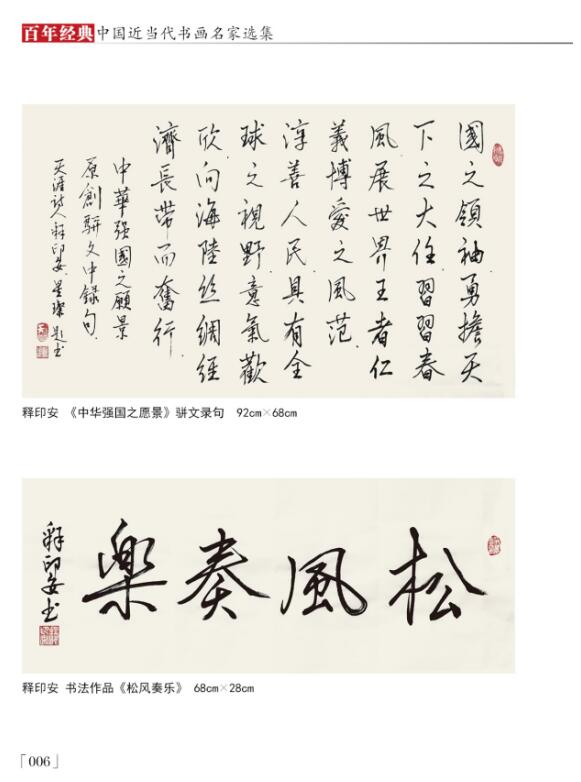 百年经典中国近当代书画名家选集
國之領袖勇擔天
下之大任習習春
風展世界王者仁
義博愛之風范
淳善人民具有全
球之視野意氣歡
欣向海陸丝綢經
濟長帶而奮行
中華强國之願景
原創駢文中録句
天涯詩人釋印安
释印安 《中华强国之愿景》骈文录句 92cm×68cm
松風奏樂
釋印安书
释印安 书法作品《松风奏乐》 68cm×28cm
「006」